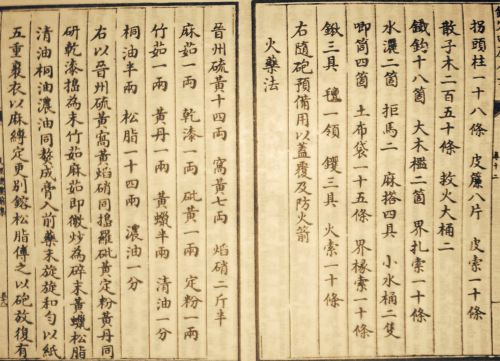 拐頭柱一十八條 皮簾八片 皮索一十條
散子木二百五十條 救火大桶二
鐵鉤十八箇 大木檻二箇 界扎索一十條
水濃二箇 拒馬二 麻搭四具 小水桶二隻
唧筒四箇 土布袋一十五條 界椽索一十條
鍬三具 氊一領 钁三具 火索一十條
右隨砲預備用以蓋覆及防火箭
火藥法
晉州硫黃十四兩 窩黃七兩 焰硝二斤半
麻茹一兩 乾漆一兩 砒黃一兩 定粉一兩
竹茹一兩 黃丹一兩 黃蠟半兩 清油一分
桐油半兩 松脂一十四兩 濃油一分
右以晉州硫黃窩黃焰硝同搗羅砒黃定粉黃丹同
研乾漆搗為末竹茹麻茹即微炒為碎末黃蠟松脂
清油桐油濃油同熬成膏入前藥末旋旋和勻以紙
五重裹衣以麻縛定更別鎔松脂傅之以砲放復有